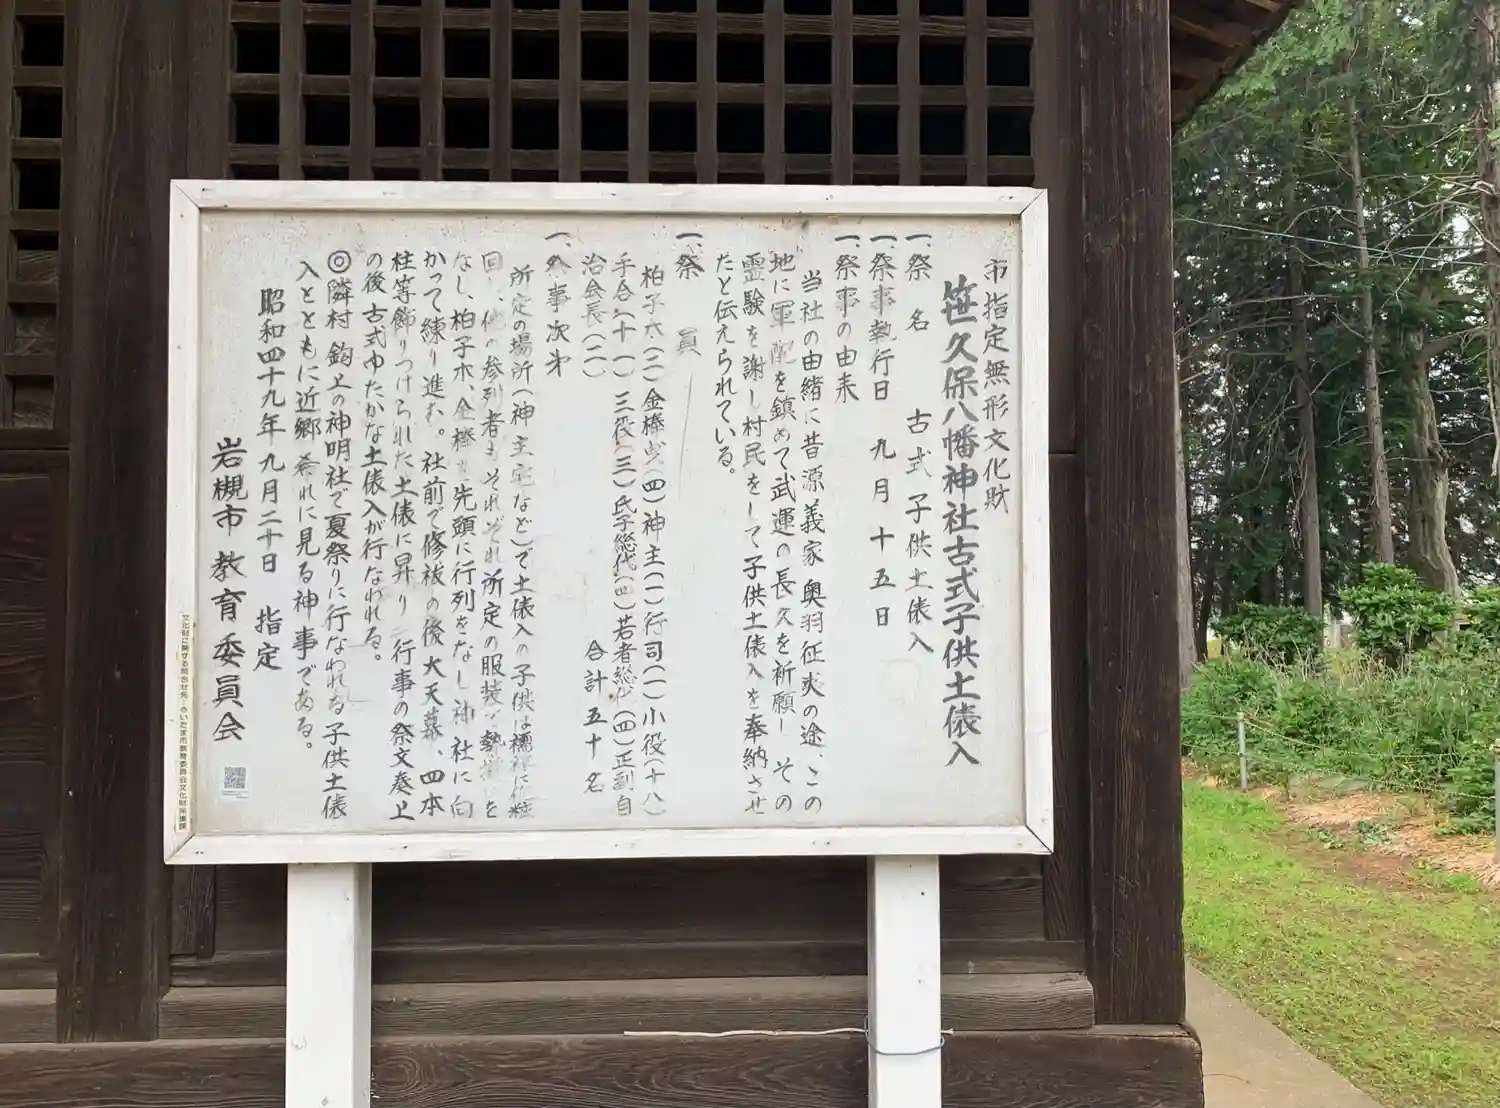 市指定無形文化財
笹久保八幡神社古式子供土俵入
一、祭名　古式子供土俵入
一、祭事執行日　九月十五日
一、祭事の由来
当社の由緒に昔源義家奥羽征矢の途、この
地に軍配を鎮めて武運の長久を祈願しその
霊験を謝し村民をして子供土俵入を奉納させ
たと伝えられている。
一、祭員
柏子木(二)金棒曳(四)神主(一)行司(一)小役(十八)
手合(十一)三役(三)氏子総代(四)若者総代(四)正副自
治会長(二)　合計五十名
一、祭事次第
所定の場所(神主宅など)で土俵入の子供は
回し、他の参列者もそれぞれ所定の服装を
なし、柏子木、金棒を先頭に行列をなし神社に向
かって練り進む。社前で修祓の後大天幕、四本
柱等飾りつけられた土俵に昇り行事の祭文奏上
の後、古式ゆたかな土俵入が行なわれる。
◎隣村鈎上の神明社で夏祭りに行なわれる子供土俵
入とともに近郷希れに見る神事である。
昭和四十九年九月二十日　指定
岩槻市教育委員会
文化財に関する問合せ先：さいたま市教育委員会文化財保護課